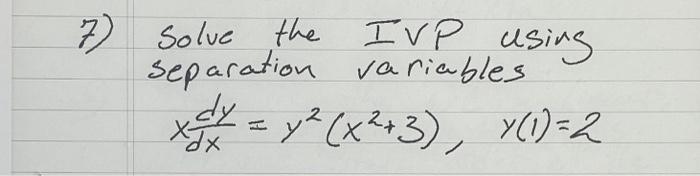 7) Solve the IVP using
separation variables
x dy/dx = y² (x²+3), y(1)=2